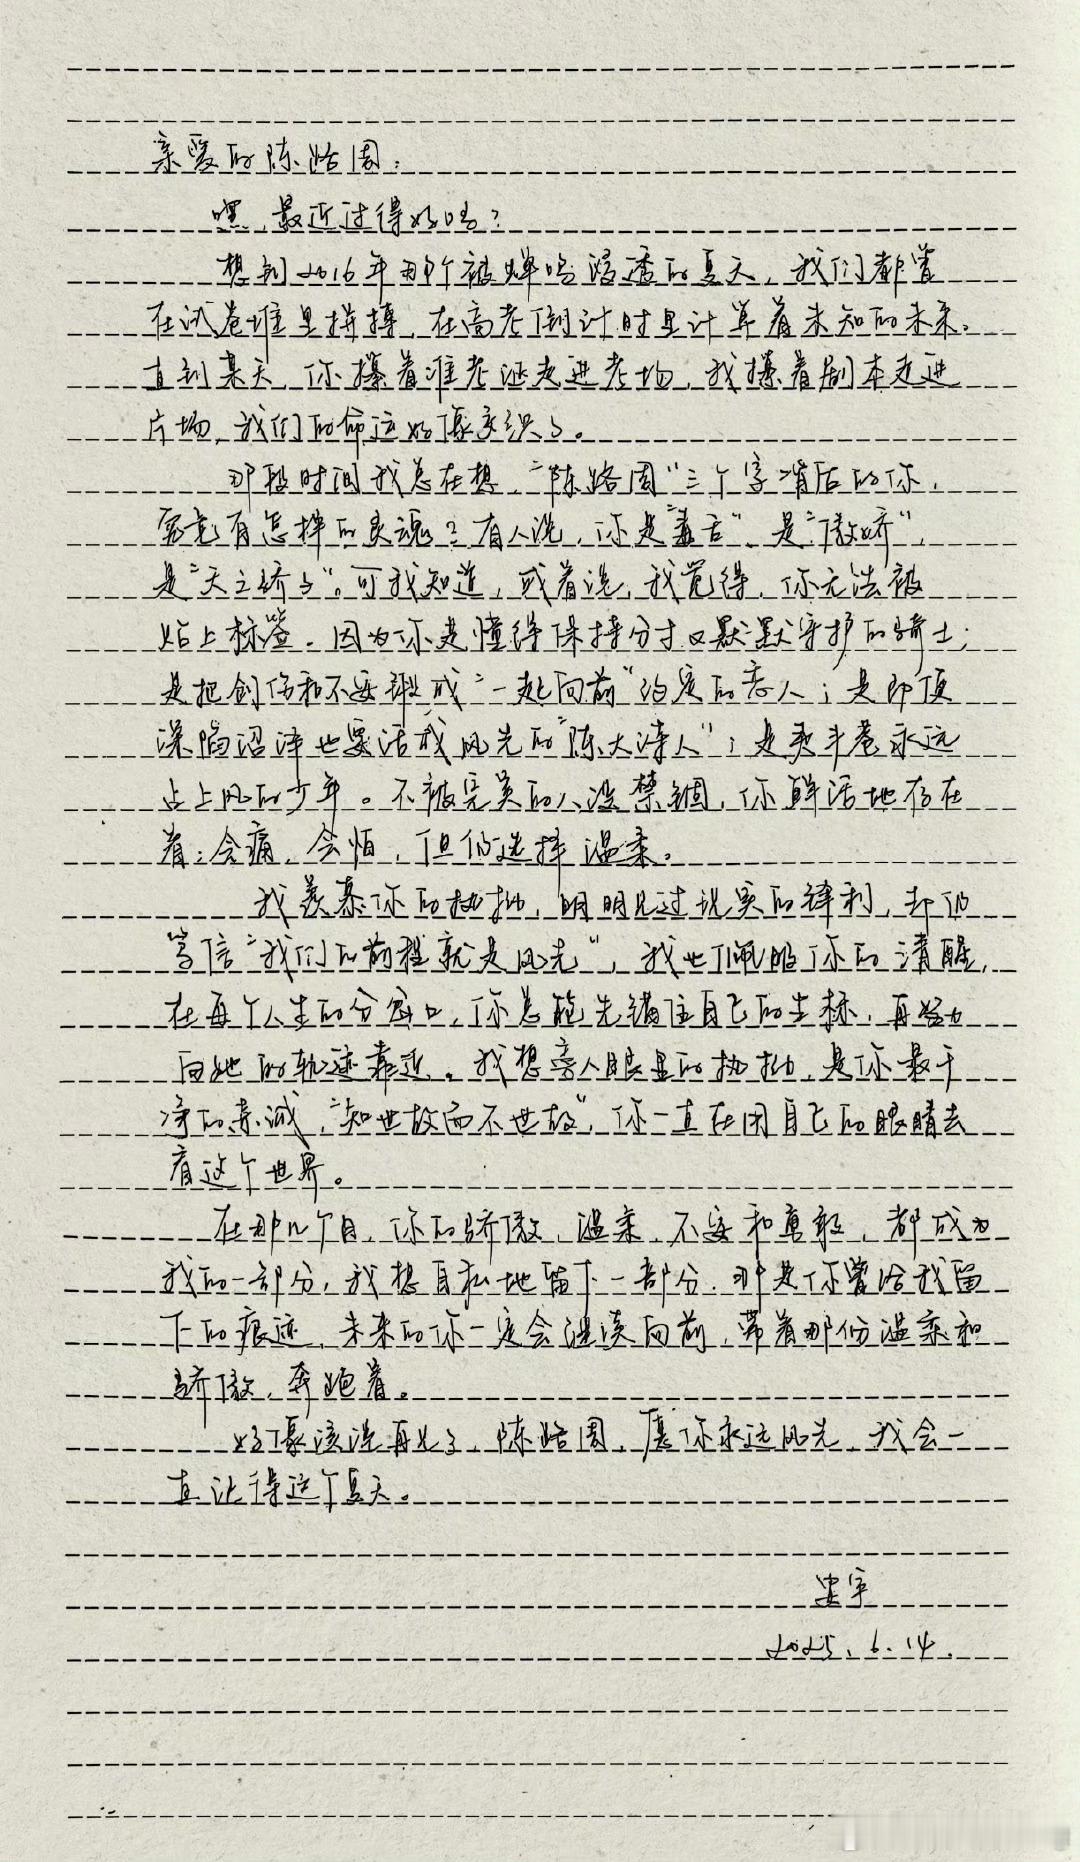 亲爱的陈路周:
嘿,最近过得好吗?
想到2016年那个被蝉鸣浸透的夏天,我们都曾
在试卷堆里拼搏,在高考倒计时里计算着未知的未来。
直到某天,你攥着准考证走进考场,我攥着剧本走进
片场,我们的命运好像交织了。
那段时间我总在想,“陈路周”三个字背后的你,
究竟有怎样的灵魂?有人说,你是“毒舌”、是“傲娇”,
是“天之骄子”。可我知道,或者说,我觉得,你无法被
贴上标签。因为你是懂得保持分寸又默默守护的骑士;
是把创伤和不安 成“一起向前”约定的恋人;是即便
深陷沼泽也要活成风光的“陈大诗人”;是夷丰巷永远
占上风的少年。不被完美的人设禁锢,你鲜活地存在
着:会痛,会怕,但仍选择温柔。
我羡慕你的执拗,明明见过现实的锋利,却仍
笃信“我们的前程就是风光”,我也佩服你的清醒,
在每个人生的分岔口,你总能先锚住自己的坐标,再努力
向她的轨迹靠近。我想旁人眼里的执拗,是你最干
净的赤诚,“知世故而不世故”,你一直在用自己的眼睛去
看这个世界。
在那几个月,你的骄傲、温柔、不安和勇敢,都成为
我的一部分,我想自私地留下一部分,那是你曾给我留
下的痕迹,未来的你一定会继续向前,带着那份温柔和
骄傲,奔跑着。
好像该说再见了,陈路周,愿你永远风光,我会一
直记得这个夏天。
安宇
2025.6.14.